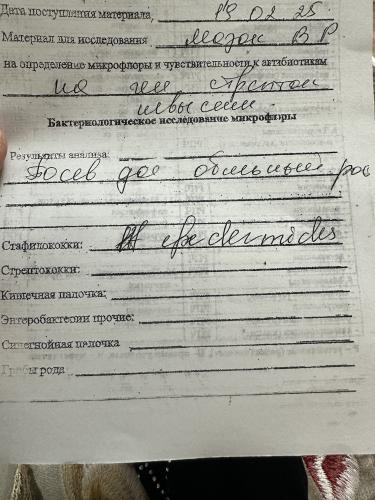 Дата поступления материала 19 02 25
Материал для исследования мазок
на определение микрофлоры и чувствительности к антибиотикам
на
Бактериологическое исследование микрофлоры
Результаты анализа:
Посев дал обильный рос
Стафилококки: epidermidis
Стрептококки:
Кишечная палочка:
Энтеробактерии прочие:
Синегнойная палочка
Грибы рода